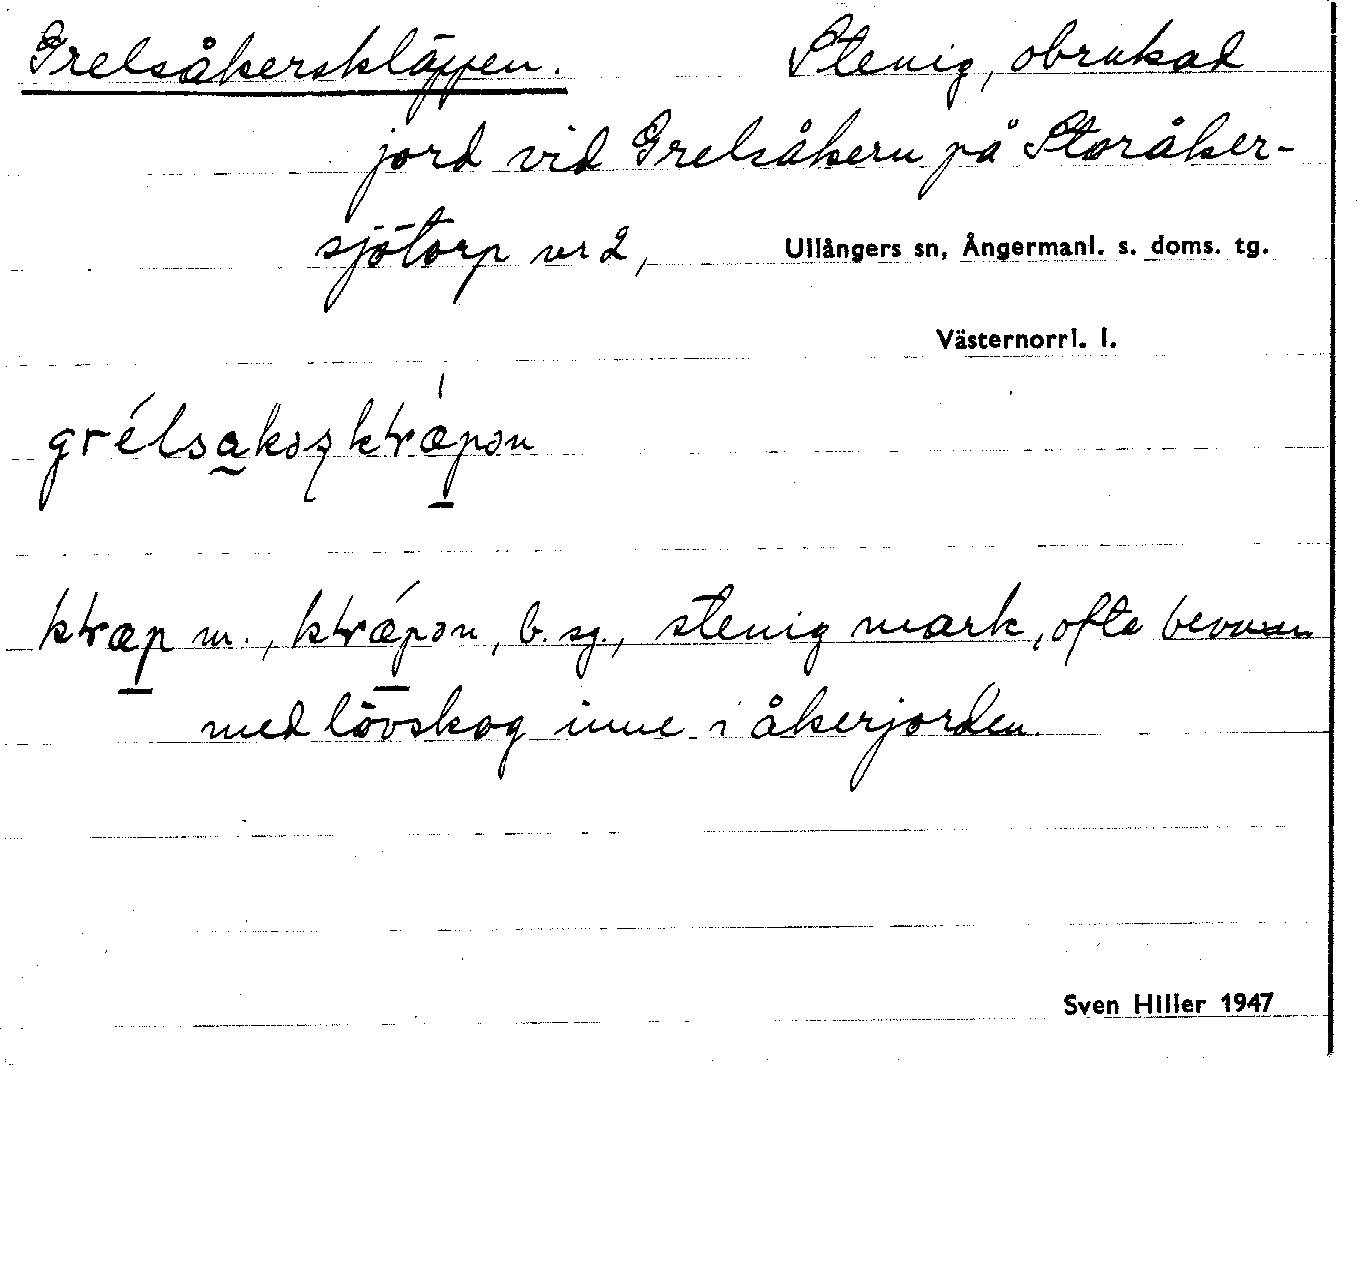 Grelsåkerskläppen. Stenig, obrukad
jord vid Grelsåkern på Storåker-
sjötorp nr 2, Ullångers sn, Ångermanl. s. doms. tg.
Västernorrl. l.
stenig mark, ofta bevuxen
med lövskog inne i åkerjorden.
Sven Hiller 1947